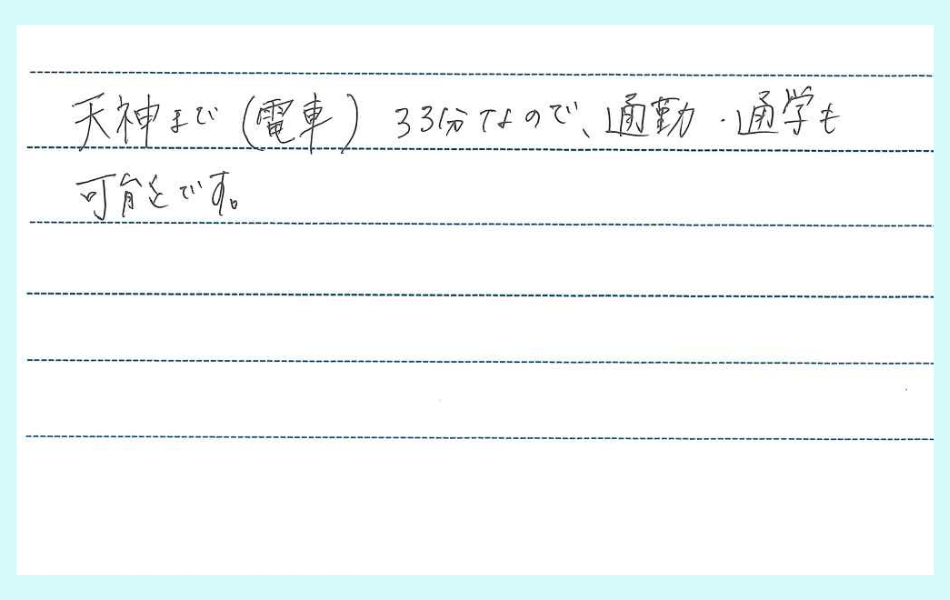 天神まで（電車）33分なので、通勤・通学も
可能です。